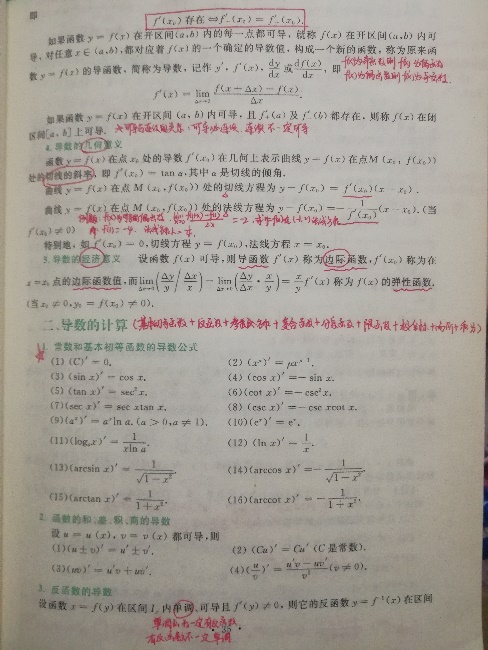 即
f′(x₀) 存在 ⇔ f′₋(x₀) = f′₊(x₀).
如果函数 y = f(x) 在开区间 (a,b) 内的每一点都可导, 就称 f(x) 在开区间 (a,b) 内可
导, 对任意 x∈(a,b), 都对应着 f(x) 的一个确定的导数值, 构成一个新的函数, 称为原来函
数 y = f(x) 的导函数, 简称为导数, 记作 y′, f′(x), dy/dx 或 df(x)/dx, 即
f′(x) = lim(Δx→0) [f(x + Δx) − f(x)]/Δx.
如果函数 y = f(x) 在开区间 (a,b) 内可导, 且 f′₊(a) 及 f′₋(b) 都存在, 则称 f(x) 在闭
区间[a,b]上可导.
4. 导数的几何意义
函数 y = f(x) 在点 x₀ 处的导数 f′(x₀) 在几何上表示曲线 y = f(x) 在点 M(x₀, f(x₀))
处的切线的斜率, 即 f′(x₀) = tan α, 其中 α 是切线的倾角.
曲线 y = f(x) 在点 M(x₀, f(x₀)) 处的切线方程为 y − f(x₀) = f′(x₀)(x − x₀).
曲线 y = f(x) 在点 M(x₀, f(x₀)) 处的法线方程为 y − f(x₀) = −1/f′(x₀) (x − x₀). (当
f′(x₀) ≠ 0)
特别地, 如 f′(x₀) = 0, 切线方程 y = f(x₀), 法线方程 x = x₀.
5. 导数的经济意义 设函数 f(x) 可导, 则导函数 f′(x) 称为边际函数, f′(x₀) 称为在
x = x₀ 点的边际函数值, 而 lim(Δx→0) (Δy/y / Δx/x) = lim(Δx→0) (Δy/Δx · x/y) = x/y f′(x) 称为 f(x) 的弹性函数.
(当 x₀ ≠ 0, y₀ = f(x₀) ≠ 0).
二、导数的计算
1. 常数和基本初等函数的导数公式
(1) (C)′ = 0. (2) (xᵘ)′ = μxᵘ⁻¹.
(3) (sin x)′ = cos x. (4) (cos x)′ = − sin x.
(5) (tan x)′ = sec²x. (6) (cot x)′ = − csc²x.
(7) (sec x)′ = sec xtan x. (8) (csc x)′ = − csc xcot x.
(9) (aˣ)′ = aˣ ln a. (a > 0, a ≠ 1). (10) (eˣ)′ = eˣ.
(11) (logₐx)′ = 1/(xln a). (12) (ln x)′ = 1/x.
(13) (arcsin x)′ = 1/√(1−x²). (14) (arccos x)′ = − 1/√(1−x²).
(15) (arctan x)′ = 1/(1+x²). (16) (arccot x)′ = − 1/(1+x²).
2. 函数的和、差、积、商的导数
设 u = u(x), v = v(x) 都可导, 则
(1) (u ± v)′ = u′ ± v′. (2) (Cu)′ = Cu′ (C 是常数).
(3) (uv)′ = u′v + uv′. (4) (u/v)′ = (u′v − uv′)/v² (v ≠ 0).
3. 反函数的导数
设函数 x = f(y) 在区间 Iᵧ 内单调、可导且 f′(y) ≠ 0, 则它的反函数 y = f⁻¹(x) 在区间
单调函数一定有反函数
有反函数不一定单调